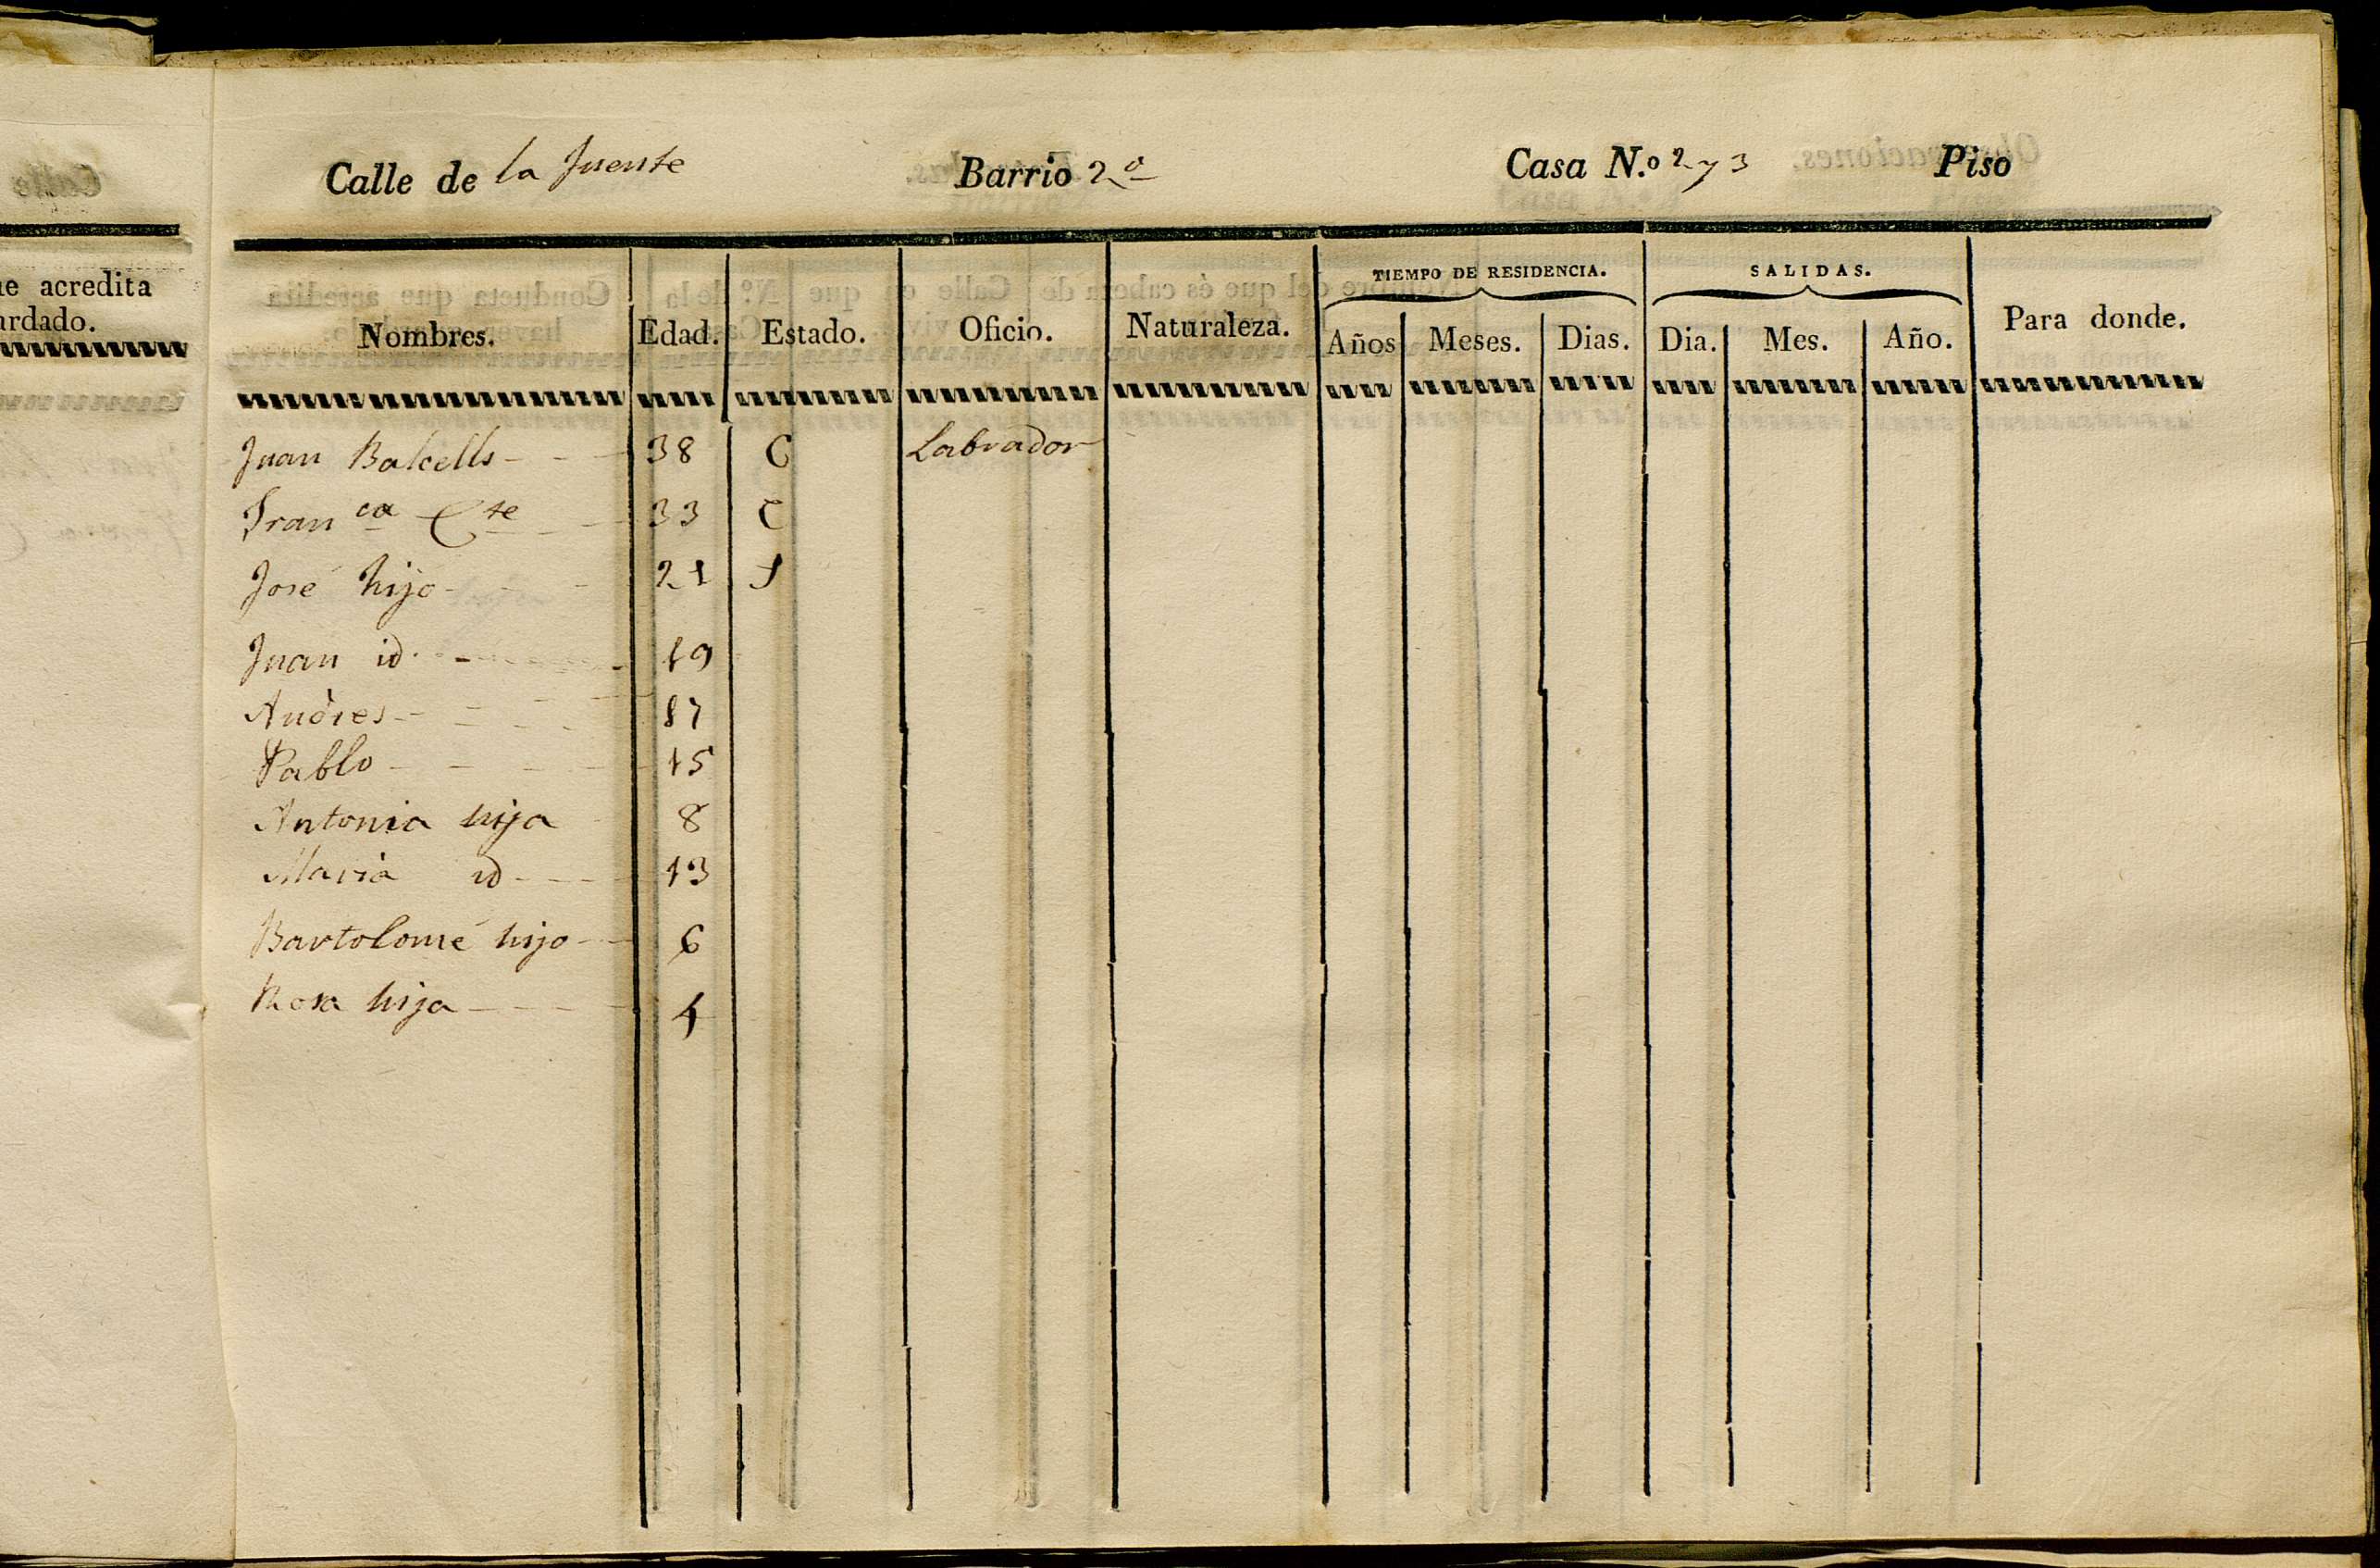 Calle de la fuente Barrio 2º Casa N.º 2 y 3 Piso
ue acredita
ardado.
TIEMPO DE RESIDENCIA. SALIDAS.
Nombres. Edad. Estado. Oficio. Naturaleza. Años Meses. Dias. Dia. Mes. Año. Para donde.
Juan Balcells 38 C Labrador
Fran ca Cte 33 C
José hijo 21 S
Juan id. 19
Andres 17
Pablo 15
Antonia hija 8
Maria id 13
Bartolomé hijo 6
Rosa hija 4